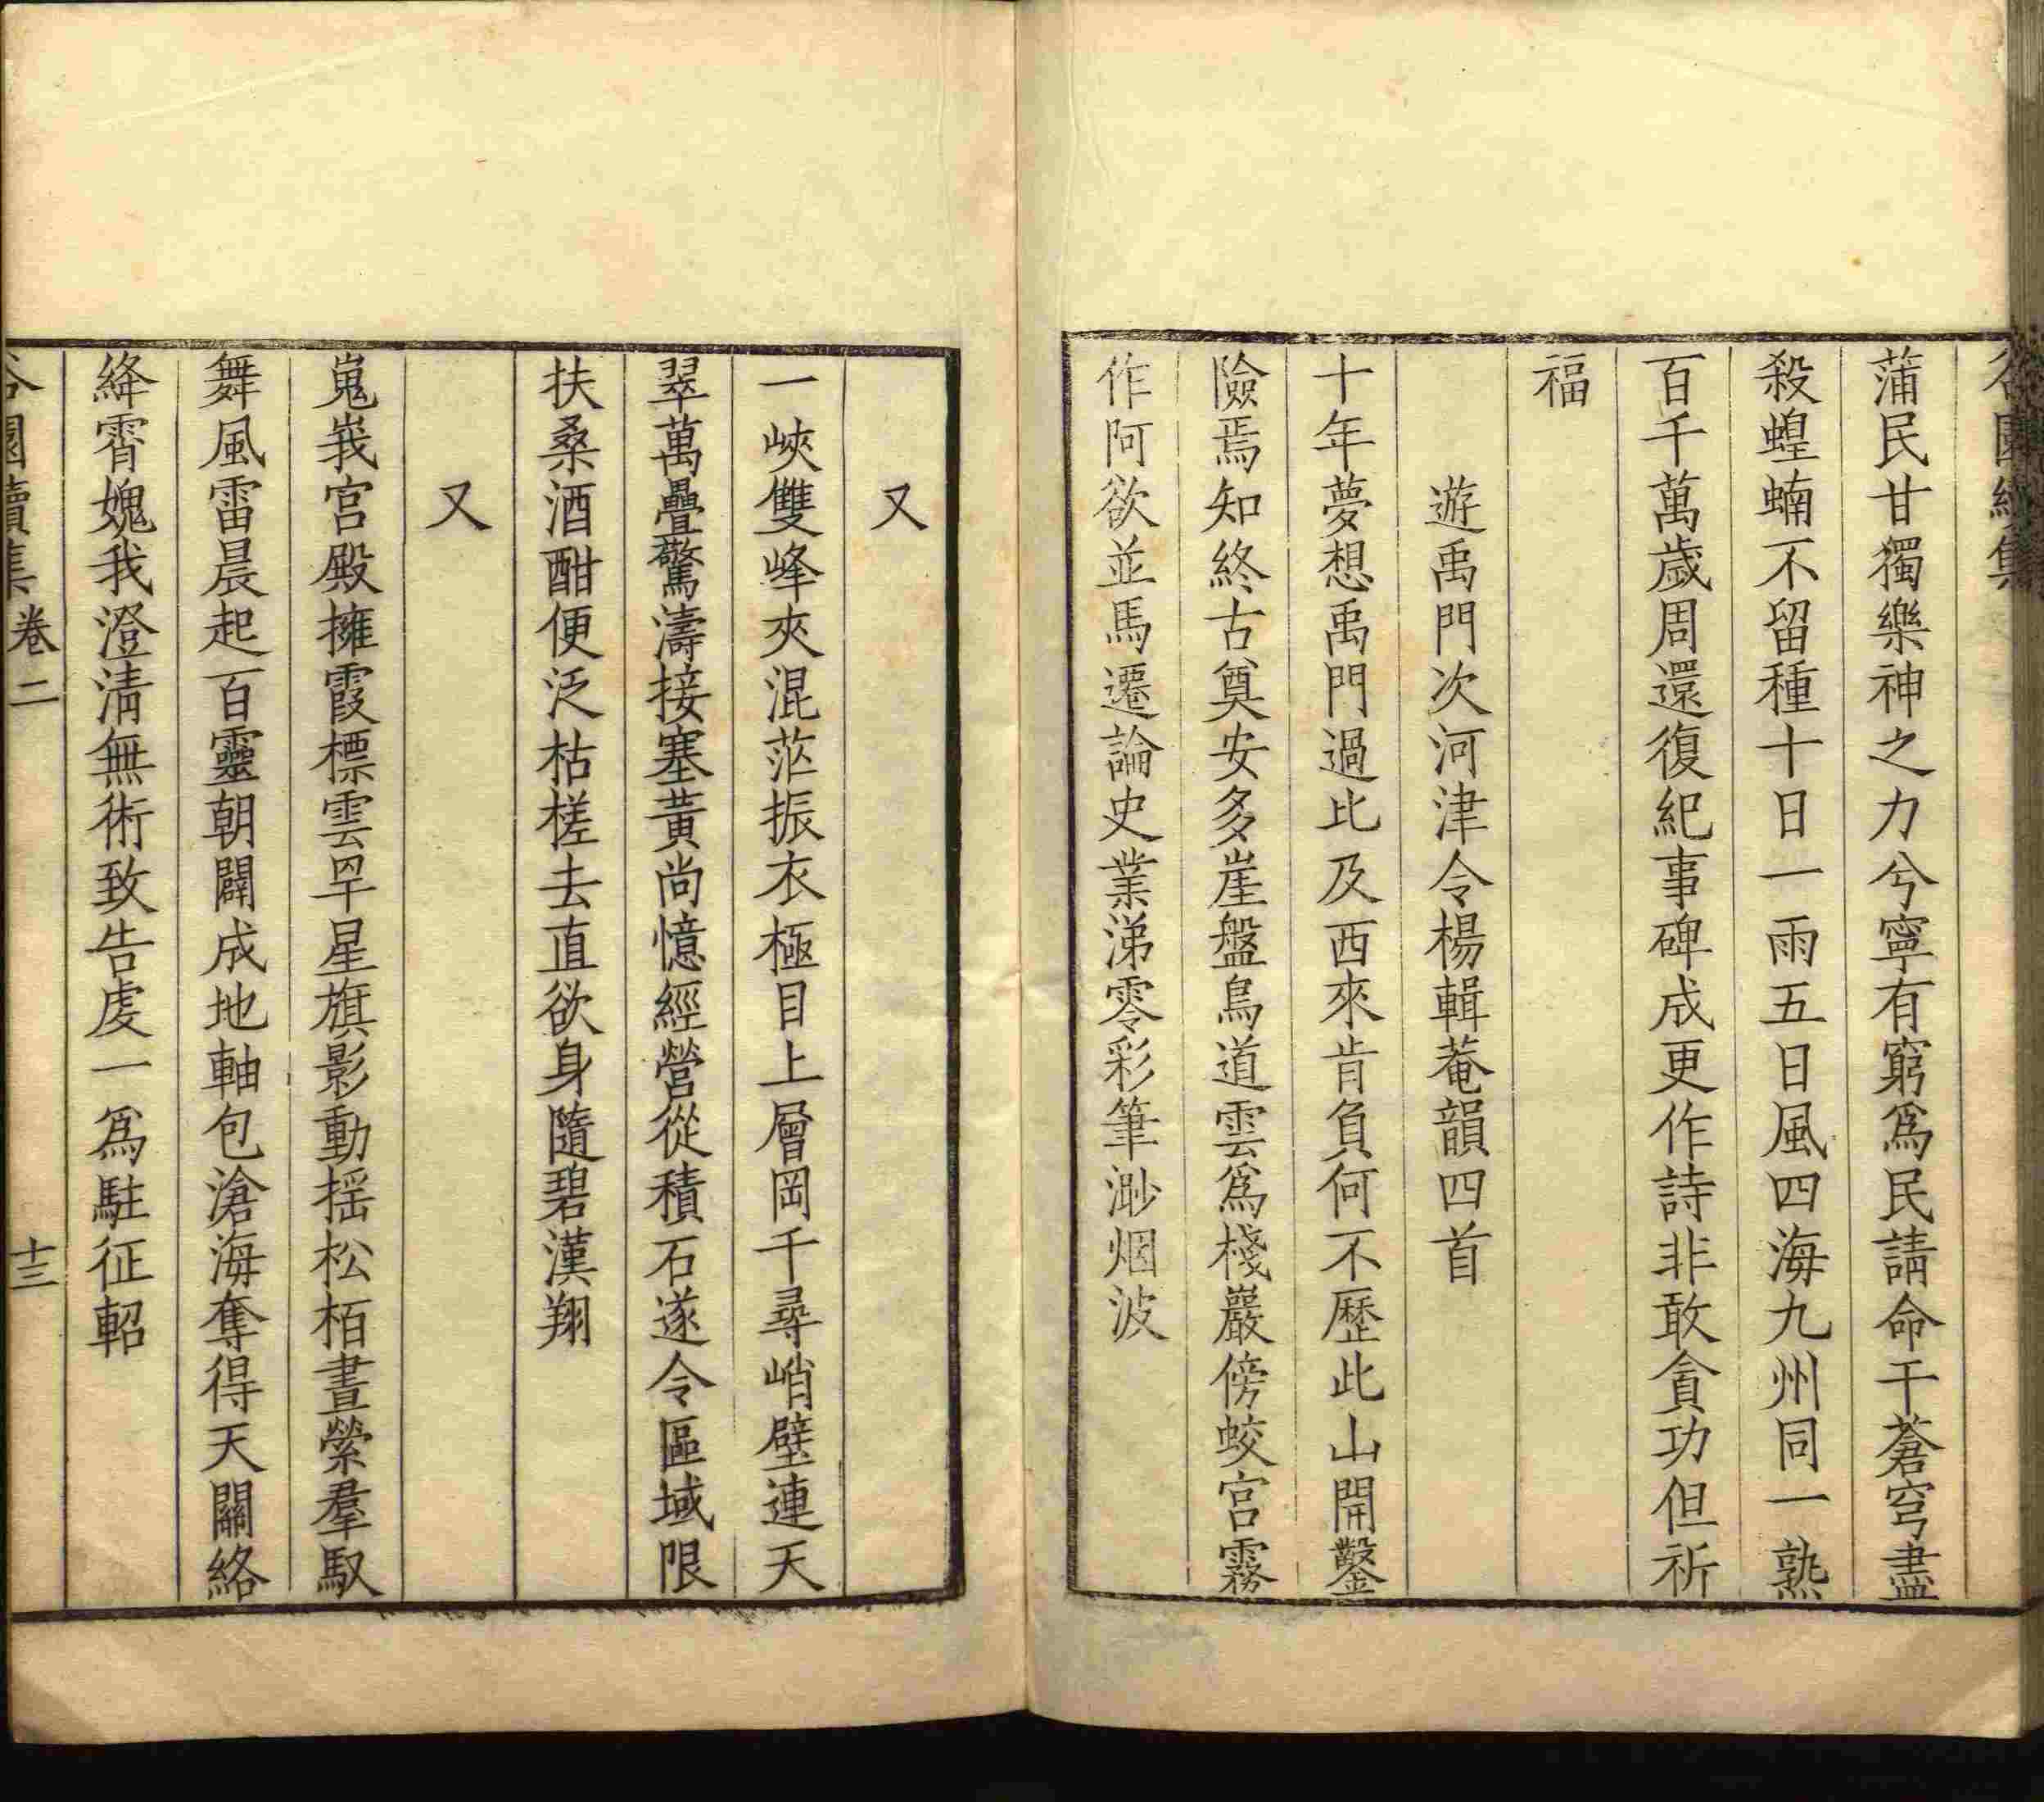 蒲民甘獨樂神之力兮寧有窮爲民請命干蒼穹盡
殺蝗蝻不留種十日一雨五日風四海九州同一熟
百千萬歲周還復紀事碑成更作詩非敢貪功但祈
福
遊禹門次河津令楊輯菴韻四首
十年夢想禹門過比及西來肯負何不歷此山開鑿
險焉知終古奠安多崖盤鳥道雲爲棧巖傍蛟宮霧
作阿欲並馬遷論史業涕零彩筆渺烟波
又
一峽雙峰夾混茫振衣極目上層岡千尋峭壁連天
翠萬疊驚濤接塞黃尚憶經營從積石遂令區域限
扶桑酒酣便泛枯槎去直欲身隨碧漢翔
又
嵬峩宮殿擁霞標雲罕星旗影動搖松栢晝縈羣馭
舞風雷晨起百靈朝闢成地軸包滄海奪得天關絡
絳霄媿我澄清無術致告虔一爲駐征軺
谷園續集 卷二 十三